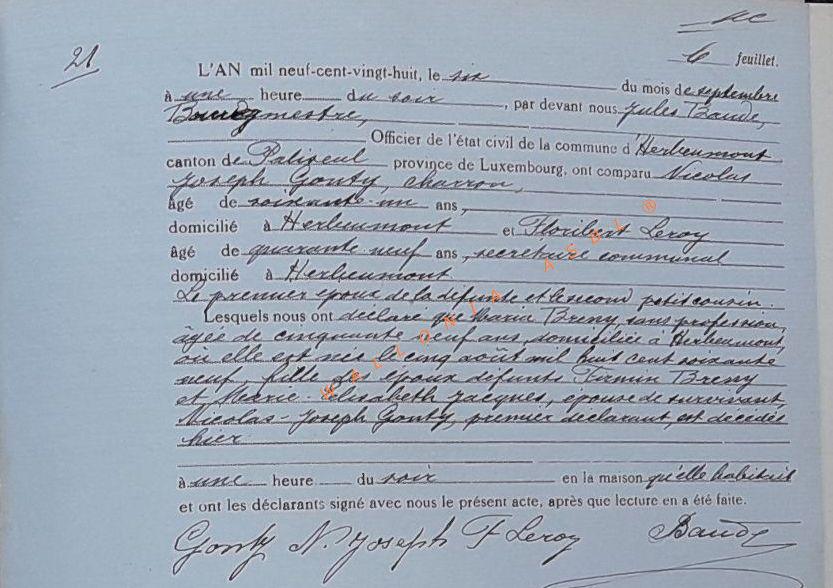 21
6 feuillet.
L'AN mil neuf-cent-vingt-huit, le six du mois de septembre
à une heure du soir, par devant nous Jules Baude,
Bourgmestre,
Officier de l'état civil de la commune d'Herbeumont
canton de Paliseul province de Luxembourg, ont comparu Nicolas
Joseph Gonty, charron,
âgé de soixante-un ans,
domicilié à Herbeumont et Floribert Leroy
âgé de quarante neuf ans, secrétaire communal
domicilié à Herbeumont
Le premier époux de la défunte et le second petit cousin.
Lesquels nous ont déclaré que Maria Breny, sans profession,
âgée de cinquante neuf ans, domiciliée à Herbeumont,
où elle est née le cinq août mil huit cent soixante
neuf, fille des époux défunts Firmin Breny
et Marie-Elisabeth Jacques, épouse de survivant,
Nicolas-Joseph Gonty, premier déclarant, est décédée
hier
à une heure du soir en la maison qu'elle habitait
et ont les déclarants signé avec nous le présent acte, après que lecture en a été faite.
Gonty N. Joseph F Leroy Baude
WALLONIA ASBL ®